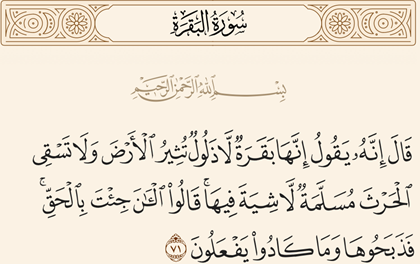 سُورَةُ البَقَرَةِ
بِسْمِ اللَّهِ الرَّحْمَٰنِ الرَّحِيمِ
قَالَ إِنَّهُۥ يَقُولُ إِنَّهَا بَقَرَةٌ لَّا ذَلُولٌ تُثِيرُ ٱلْأَرْضَ وَلَا تَسْقِى
ٱلْحَرْثَ مُسَلَّمَةٌ لَّا شِيَةَ فِيهَا ۚ قَالُوا۟ ٱلْـَٰٔنَ جِئْتَ بِٱلْحَقِّ ۚ
فَذَبَحُوهَا وَمَا كَادُوا۟ يَفْعَلُونَ ٧١